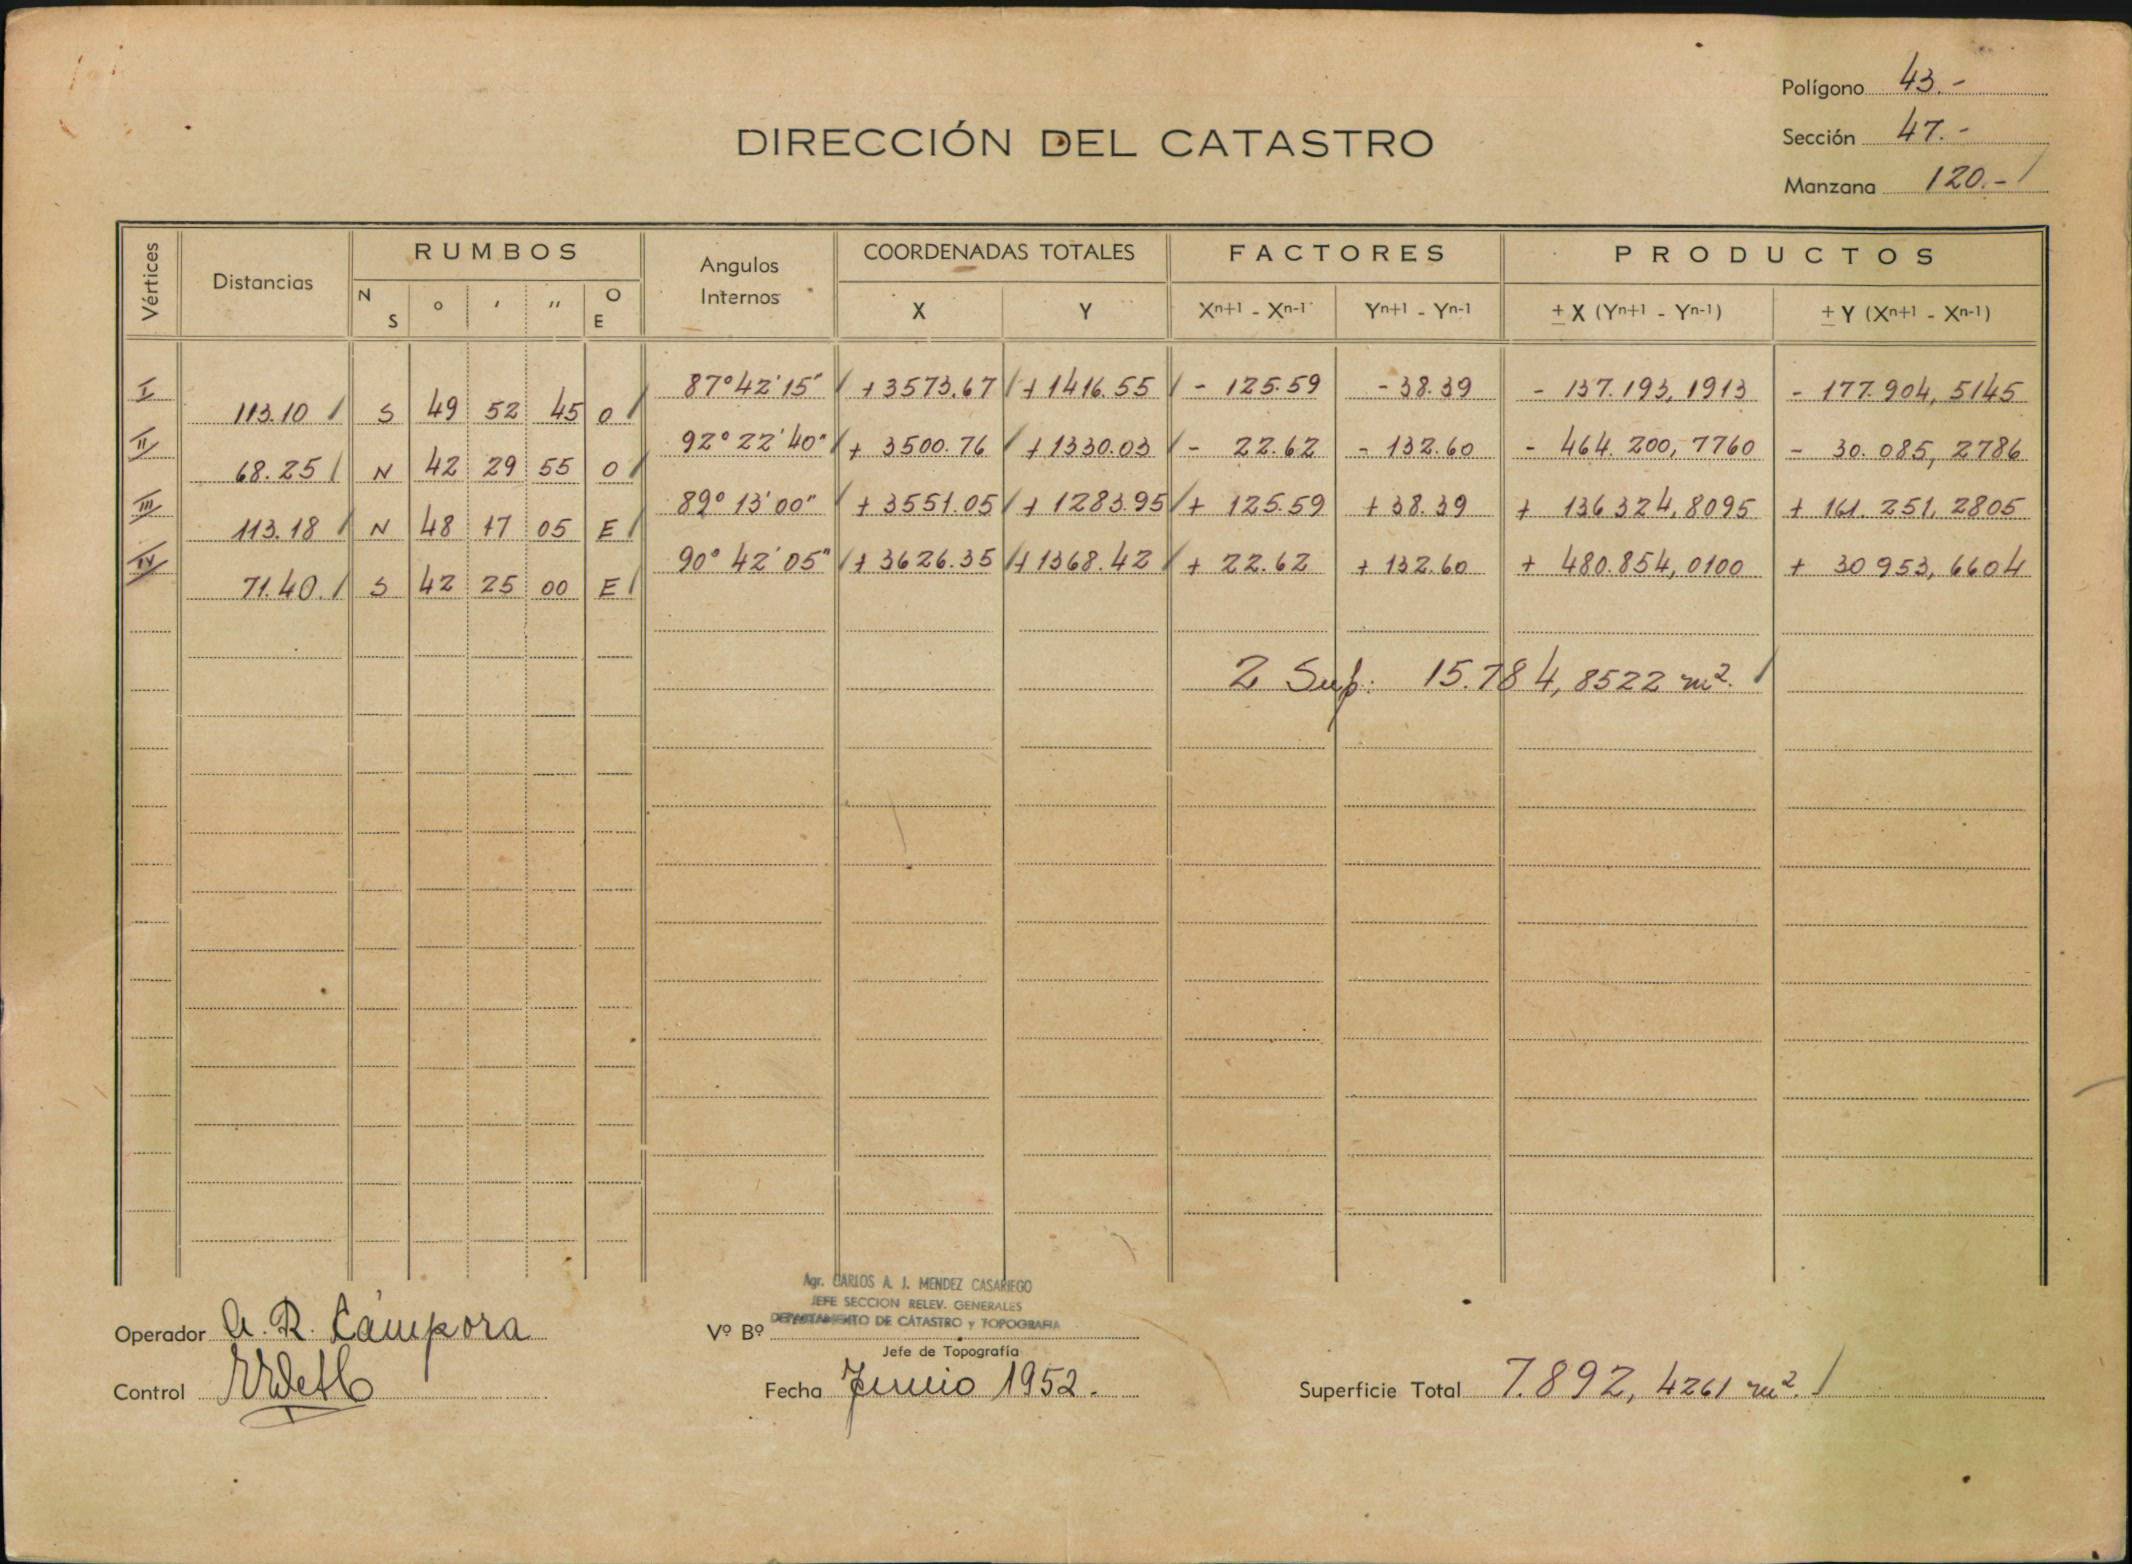 Polígono 43.-
DIRECCIÓN DEL CATASTRO
Sección 47.-
Manzana 120.-
Vértices Distancias RUMBOS Angulos Internos COORDENADAS TOTALES FACTORES PRODUCTOS
N S ° ' " O E X Y Xn+1 - Xn-1 Yn+1 - Yn-1 ± X (Yn+1 - Yn-1) ± Y (Xn+1 - Xn-1)
I 87°42'15" + 3573.67 + 1416.55 - 125.59 - 38.39 - 137.193,1913 - 177.904,5145
113.10 S 49 52 45 O
II 92°22'40" + 3500.76 + 1330.03 - 22.62 - 132.60 - 464.200,7760 - 30.085,2786
68.25 N 42 29 55 O
III 89°13'00" + 3551.05 + 1283.95 + 125.59 + 38.39 + 136324,8095 + 161.251,2805
113.18 N 48 17 05 E
IV 90°42'05" + 3626.35 + 1368.42 + 22.62 + 132.60 + 480.854,0100 + 30953,6604
71.40. S 42 25 00 E
2 Sup: 15.784,8522 m².
Agr. CARLOS A. J. MENDEZ CASARIEGO
JEFE SECCION RELEV. GENERALES
DEPARTAMENTO DE CATASTRO y TOPOGRAFIA
Operador A. R. Cámpora Vº Bº
Jefe de Topografía
Control Fecha Junio 1952. Superficie Total 7.892,4261 m².